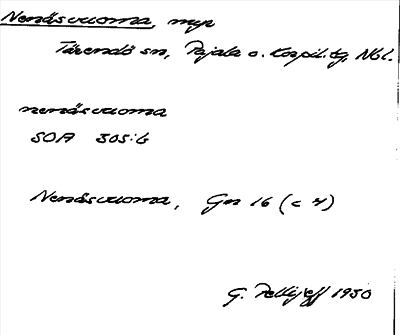 Nenäsvuoma, myr
Tärendö sn, Pajala o. Korpil. tg, Nbl.
nenäsvuoma
SOA 305:6
Nenäsvuoma, Gn 16 (c 4)
G. Pellijeff 1950